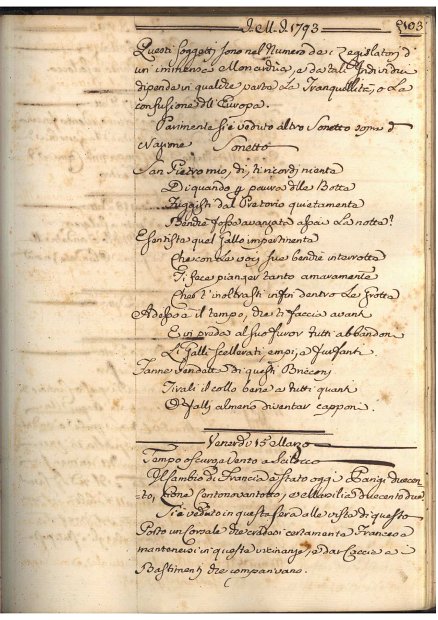 J. M. J. 1793 103
Questi Soggetti sono nel Numero de i Legislatori d'
un immensa Monarchia, e da tali Individui
dipende in qualche parte La Tranquillità, o La
confusione dell Europa.
Parimente si è veduto altro Sonetto sopra d
Nazione Sonetto
San Pietro mio, di, ti ricordi niente
Di quando p paura delle Botte
Fuggisti dal Pretorio quietamente
Benchè fosse avanzata assai La notte?
E sentiste quel Gallo impertinente
Che con La voce sue benchè interrotta
Ti fece pianger tanto amaramente
Che t'inoltrasti infin dentro La Grotta
Adesso è il tempo, che ti faccia avanti
E in preda al suo furor tutti abbandon
Li Galli scellerati, empi, e furfanti
Fanne Vendetta di questi Bricconi
Tirali il collo bene a tutti quanti
O falli almeno diventar capponi.
Venerdì 15 Marzo
Tempo oscuro, e Vento a Scilocco
Il Cambio di Francia è stato oggi Parigi duecen-
to, Lione Centonovantotto, e Marsilia duecento due
Si è veduto in questa sera alle viste di questo
Porto un Corsale che credesi certamente Francese
mantenersi in queste vicinanze, e dar Caccia a i
Bastimenti che comparivano.